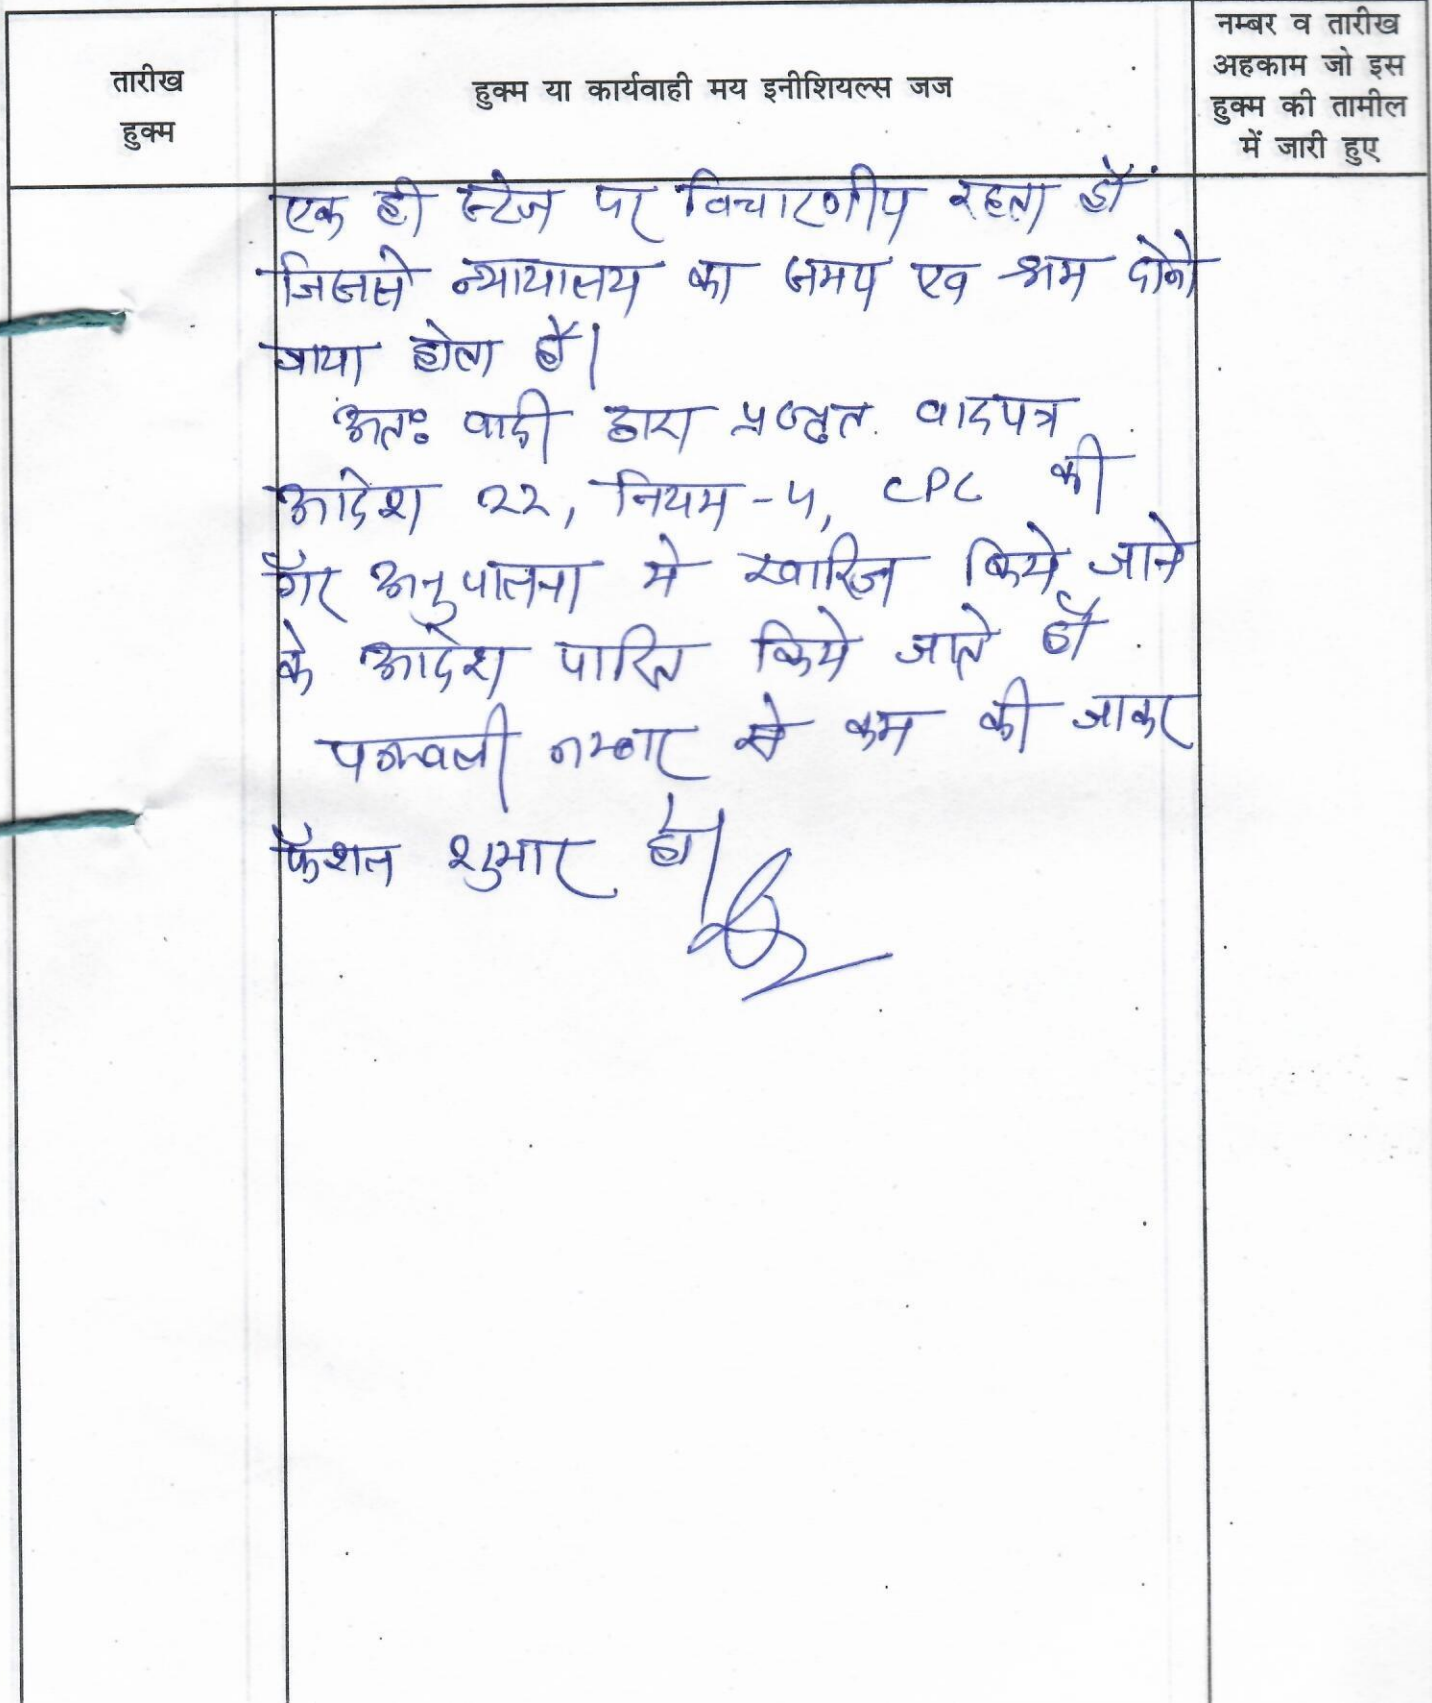 तारीख
हुक्म
हुक्म या कार्यवाही मय इनीशियल्स जज
नम्बर व तारीख
अहकाम जो इस
हुक्म की तामील
में जारी हुए
एक ही स्टेज पर विचारणीय रहता है
जिससे न्यायालय का समय एव श्रम दोनो
जाया होता है।
अतः वादी द्वारा प्रस्तुत वादपत्र
आदेश 22, नियम -4, CPC की
गैर अनुपालना मे खारिज किये जाने
के आदेश पारित किये जाते है
पत्रावली नम्बर से कम की जाकर
फैशल शुमार हो।